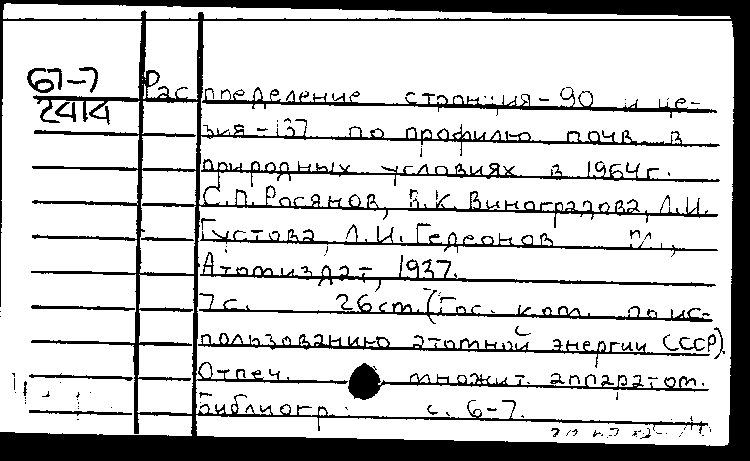 67-7
2414
Распределение стронция-90 и це-
зия-137 по профилю почв в
природных условиях в 1964г.
С.П. Росянов, В.К. Виноградова, Л.И.
Густова, Л.И. Гедеонов М.,
Атомиздат, 1937.
7с. 26см. (Гос. ком. по ис-
пользованию атомной энергии СССР).
Отпеч. множит. аппаратом.
Библиогр.: с. 6-7.